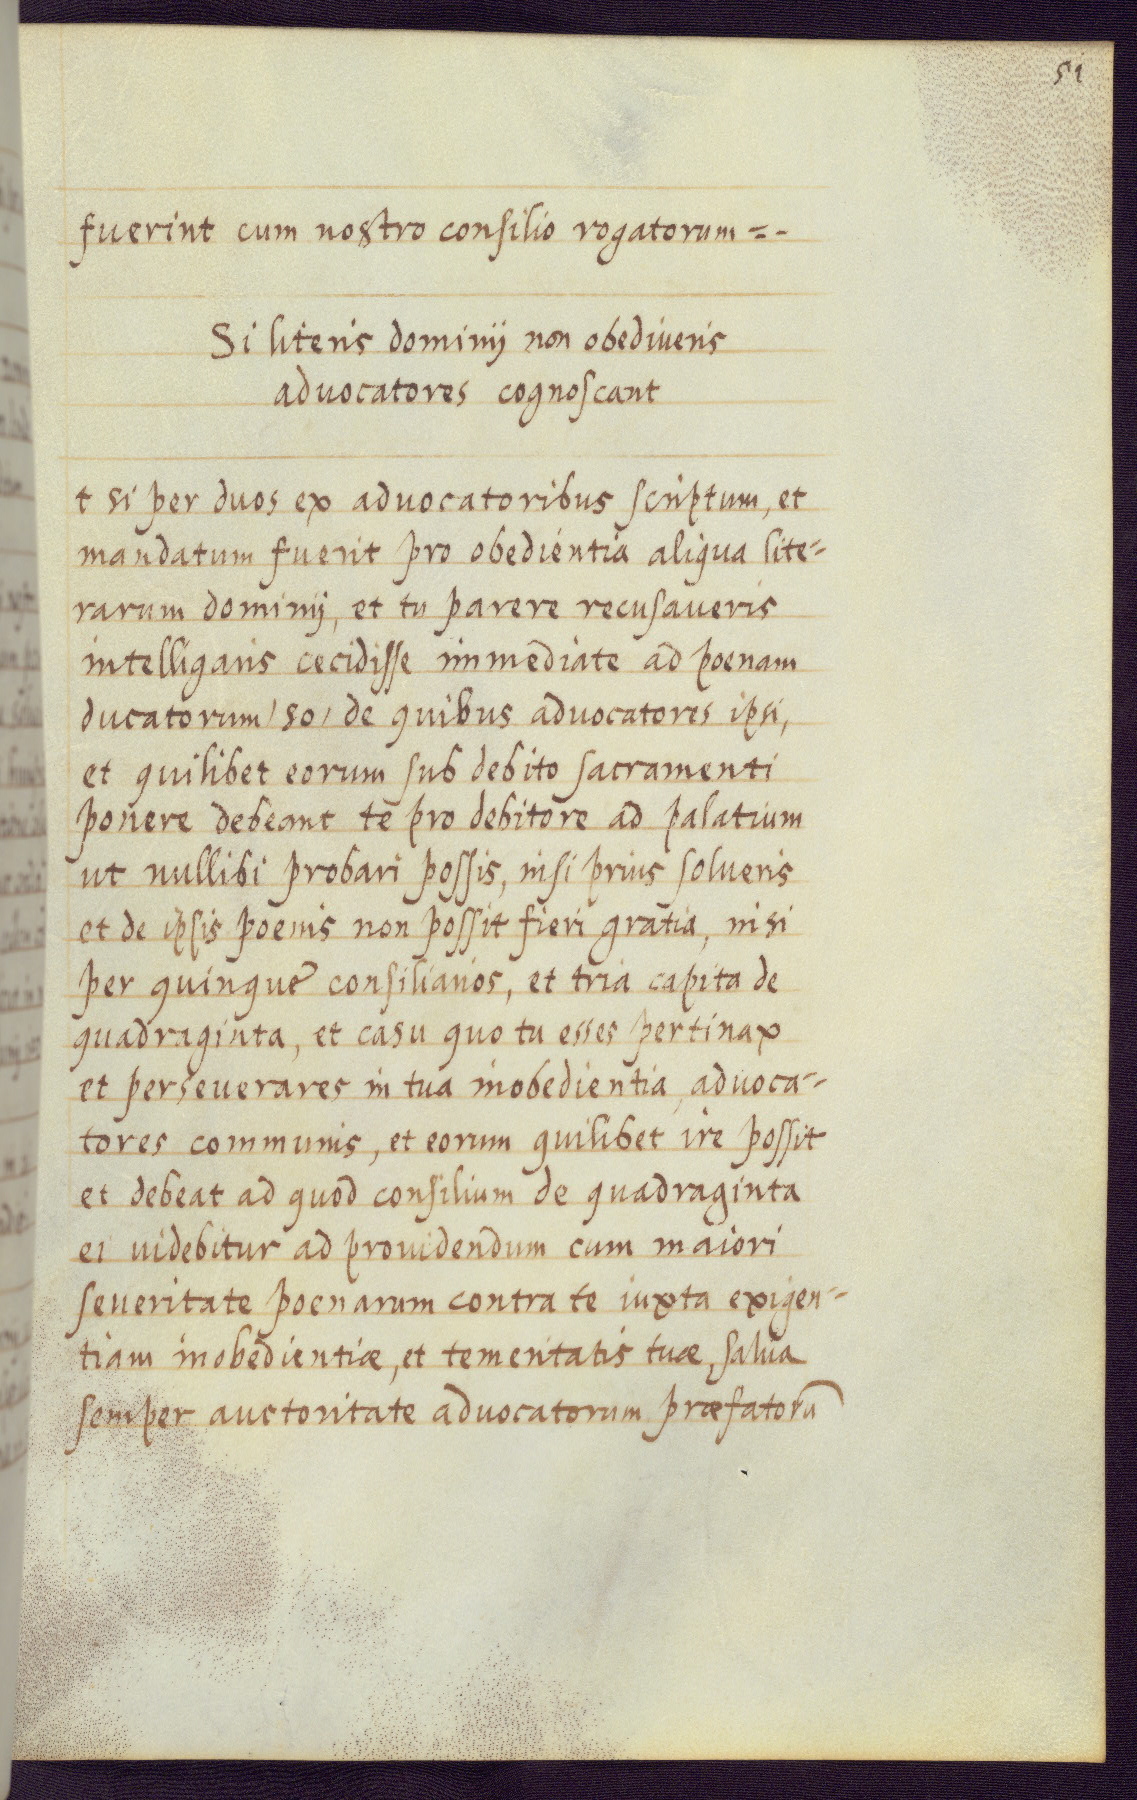 51
fuerint cum nostro consilio rogatorum =-
Si literis dominij non obediueris
advocatores cognoscant
t si per duos ex advocatoribus scriptum, et
mandatum fuerit pro obedientia aliqua lite=
rarum dominij, et tu parere recusaueris
intelligaris cecidisse immediate ad poenam
ducatorum / 50 / de quibus advocatores ipsi,
et quilibet eorum sub debito sacramenti
ponere debeant te pro debitore ad palatium
ut nullibi probari possis, nisi prius solueris
et de ipsis poenis non possit fieri gratia, nisi
per quinque consiliarios, et tria capita de
quadraginta, et casu quo tu esses pertinax
et perseuerares in tua inobedientia, advoca=
tores communis, et eorum quilibet ire possit
et debeat ad quod consilium de quadraginta
ei uidebitur ad prouidendum cum maiori
seueritate poenarum contra te iuxta exigen=
tiam inobedientiæ, et temeritatis tuæ, salua
semper auctoritate advocatorum præfatorũ